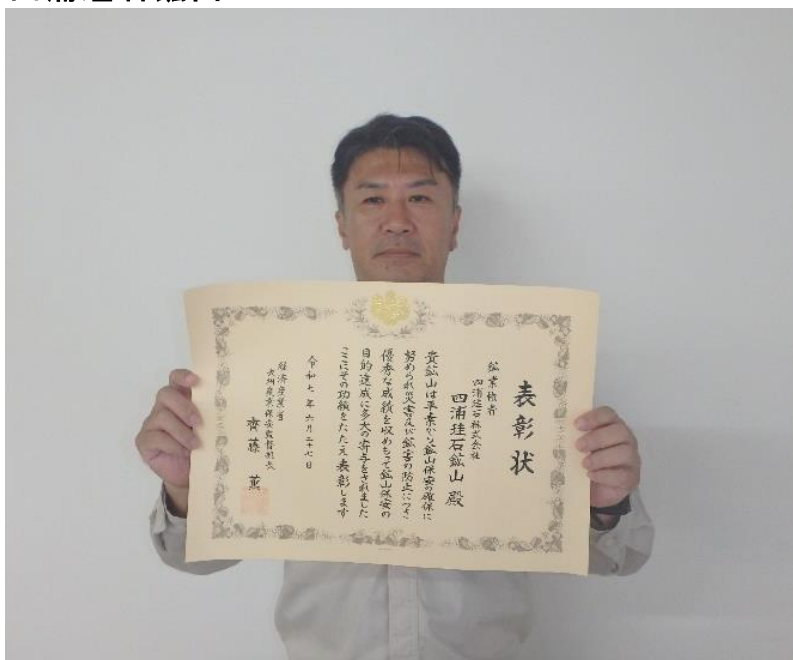 表彰状
鉱業権者
四浦珪石株式会社
四浦珪石鉱山 殿
貴鉱山は平素から鉱山保安の確保に
努められ災害及び鉱害の防止につき
優秀な成績を収めもって鉱山保安の
目的達成に多大の寄与をされました
ここにその功績をたたえ表彰します
令和七年六月二十七日
経済産業省
九州産業保安監督部長
齊藤 薫